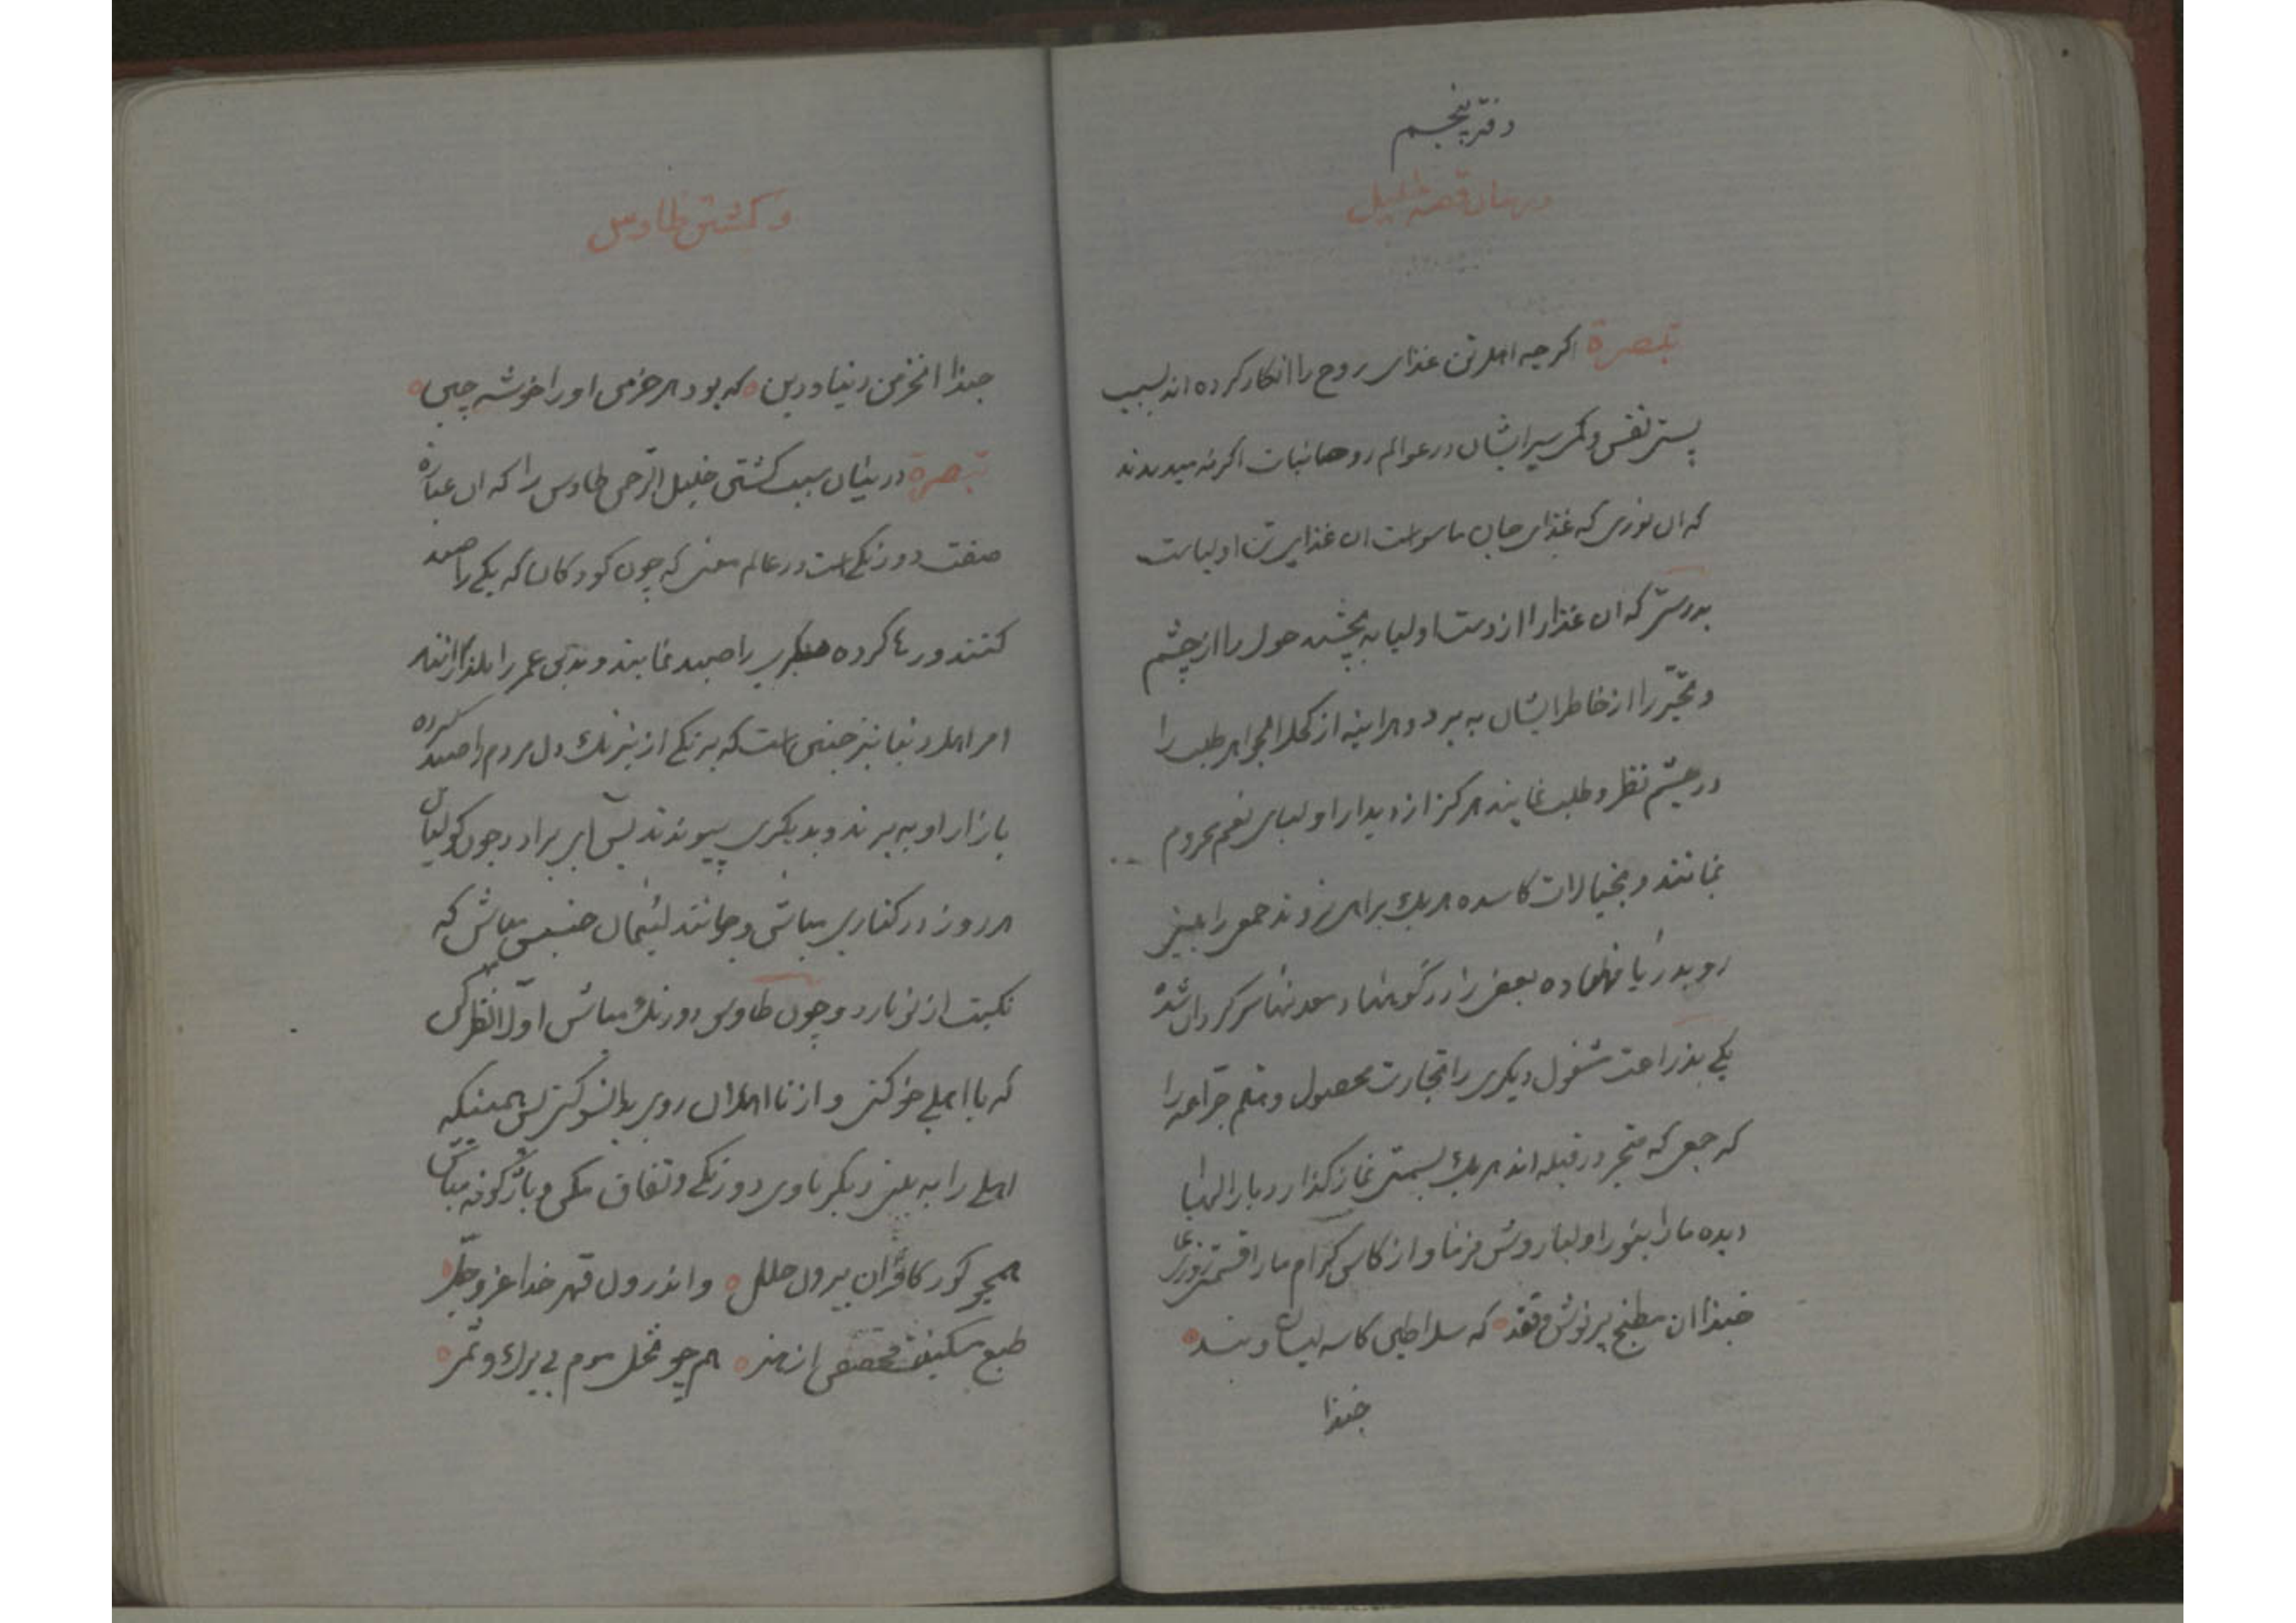 دفتر پنجم
در بیان قصه خلیل
تبصرة اکرچه اهل تن غذای روح را انکار کرده اند بسبب
پستی نفس و کمی سیر ایشان در عوالم روحانیات اکرنه میدیدند
که ان نوری که غذای جان ماسواست ان غذای تن اولیاست
بدرستی که ان غذا را از دست اولیا به بخشند حول را از چشم
و تحیّر را از خاطر ایشان به برد و هراینه از کحل الجواهر طلب را
در چشم نظر و طلب نمایند هرکز از دیدار اولیای نعم محروم
نمانند و بخیالات کاسده هریك براهی نروند جمعی را بینی
رو بدریا نهاده بعضی را در کوهها و معدنها سرکردان شده
یکی بذراعت مشغول دیکری را تجارت محصول
که جمعی که متحیر در قبله اند هریك بسمتی نماز کذارد بار الها
دیده ما را بنور اولیا روشن فرما و از کاس کرام ما را قسمتی روزی نما
حبذا ان مطبخ پرنوش و قند که سلاطین کاسه لیسان ویند
حبذا
و کشتن طاوس
حبذا ان خرمن دنیا و دین که بود هر خرمنی او را خوشه چین
تبصرة در بیان سبب کشتن خلیل الرحمن طاوس را که ان عبارة
صفت دو رنکی است در عالم معنی که چون کودکان که یکی را صید
کنند و رها کرده دیکری را صید نمایند و بدین عمر را بکذرانند
امر اهل دنیا نیز چنین است که برنکی از نیرنك دل مردم را صید کرده
بازار او به برند و بدیکری پیوندند پس ای برادر چون کولیان
هر روز در کناری مباش و مانند لئیمان خسیس مباش که
نکبت از نو بارد و چون طاوس دو رنك مباش اول نظر کن
که با اهلی خو کنی و از نااهلان روی بانسو کنی پس همینکه
اهلی را به بینی دیکر با وی دو رنکی و نفاق مکن و بازکونه مباش
همچو کور کافران بیرون حلل واندرون قهر خدا عز وجل
طبع هم چو نخل موم بی برك و ثمر